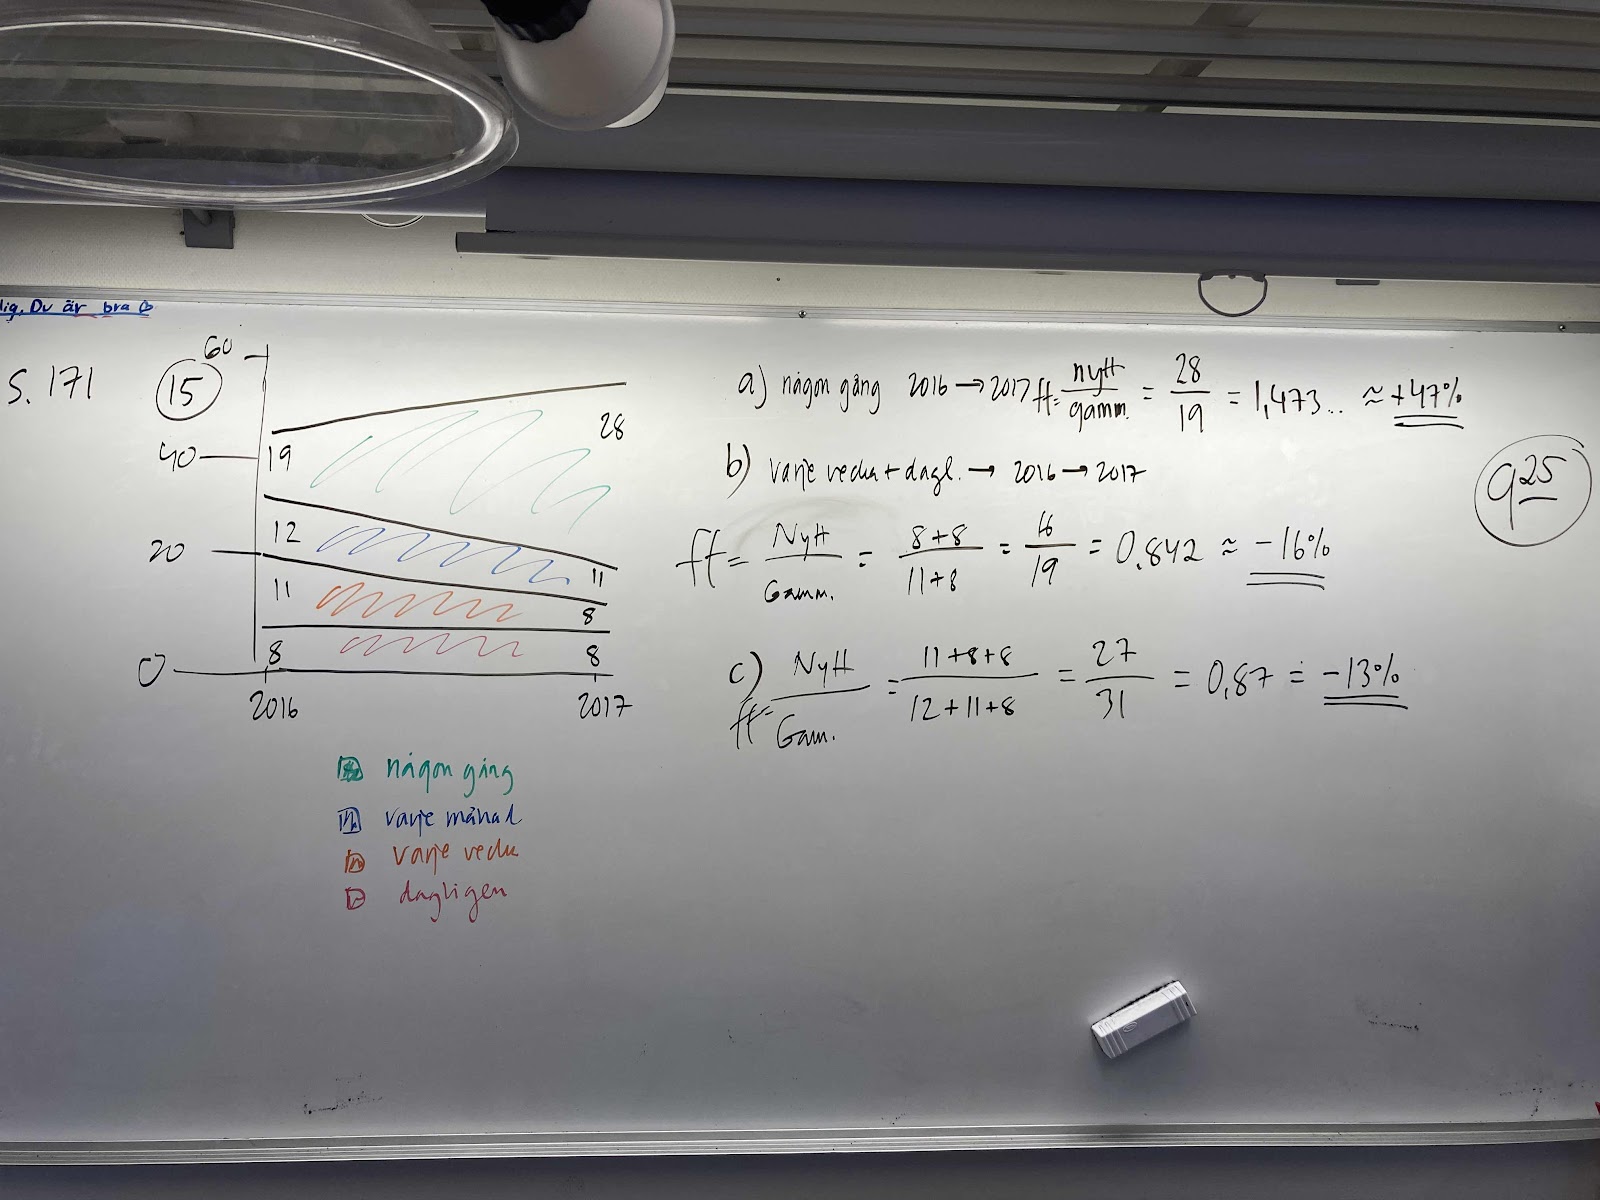 lig. Du är bra
S. 171
15
60
40
20
0
19
28
12
11
11
8
8
8
2016
2017
någon gång
varje månad
varje vecka
dagligen
a) någon gång 2016 → 2017 ff = nytt/gamm. = 28/19 = 1,473.. ≈ +47%
b) varje vecka + dagl. → 2016 → 2017
ff = Nytt/Gamm. = 8+8/11+8 = 16/19 = 0,842 ≈ -16%
c) ff = Nytt/Gam. = 11+8+8/12+11+8 = 27/31 = 0,87 = -13%
925